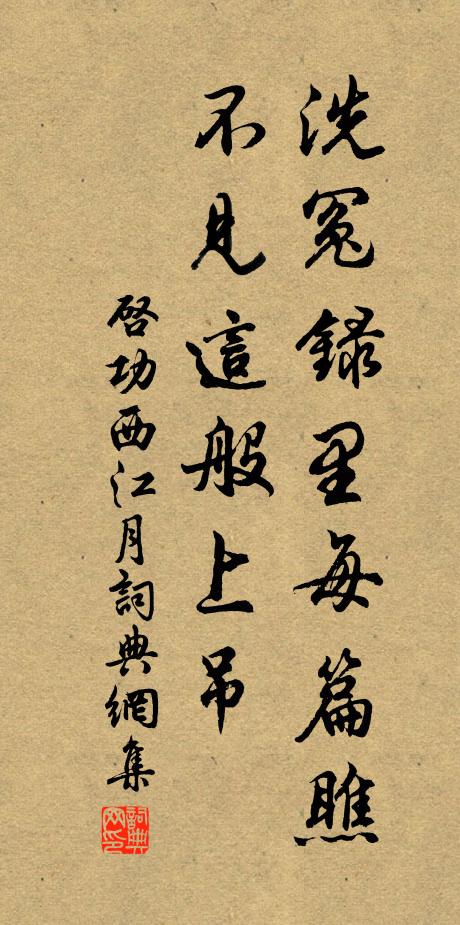 洗冤録里每篇瞧
不見這般上吊
啓功西江月詞典網集
詞典網印